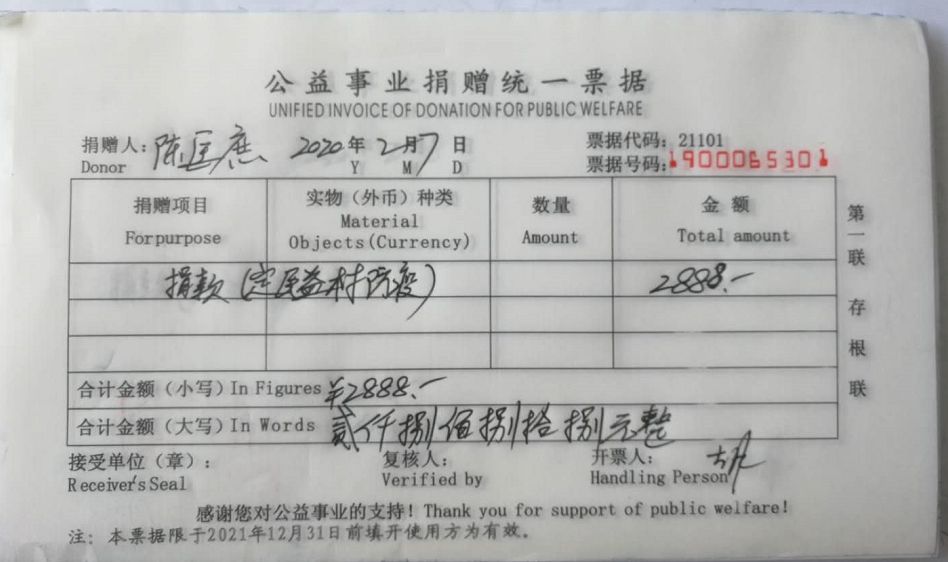 公益事业捐赠统一票据
UNIFIED INVOICE OF DONATION FOR PUBLIC WELFARE
捐赠人：陈匡庶 2020年2月7日 票据代码：21101
Donor Y M D 票据号码：1900065301
捐赠项目 实物（外币）种类 数量 金额
For purpose Material Objects(Currency) Amount Total amount
捐款（定 益村防疫） 2888.-
合计金额（小写）In Figures ¥2888.-
合计金额（大写）In Words 贰仟捌佰捌拾捌元整
接受单位（章）： 复核人： 开票人：
Receiver's Seal Verified by Handling Person
感谢您对公益事业的支持！Thank you for support of public welfare!
注：本票据限于2021年12月31日前填开使用方为有效。
第一联 存根联